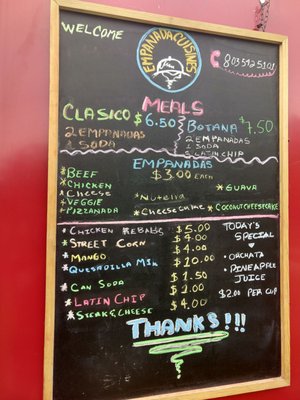 WELCOME
EMPANADACUISINES
8035125101
MEALS
CLASICO $6.50
2 EMPANADAS
1 SODA
BOTANA $7.50
2 EMPANADAS
1 SODA
1 LATIN CHIP
EMPANADAS
$3.00 EACH
*BEEF
*CHICKEN
*CHEESE
*VEGGIE
*PIZZANADA
*NUTELLA
*CHEESECAKE
*GUAVA
*COCONUTCHEESECAKE
*CHICKEN KEBABS $5.00
*STREET CORN $4.00
*MANGO $4.00
*QUESADILLA MIX $10.00
*CAN SODA $1.50
*LATIN CHIP $2.00
*STEAK&CHEESE $4.00
TODAY'S
SPECIAL
• ORCHATA
• PINEAPPLE
JUICE
$2.00 PER CUP
THANKS!!!